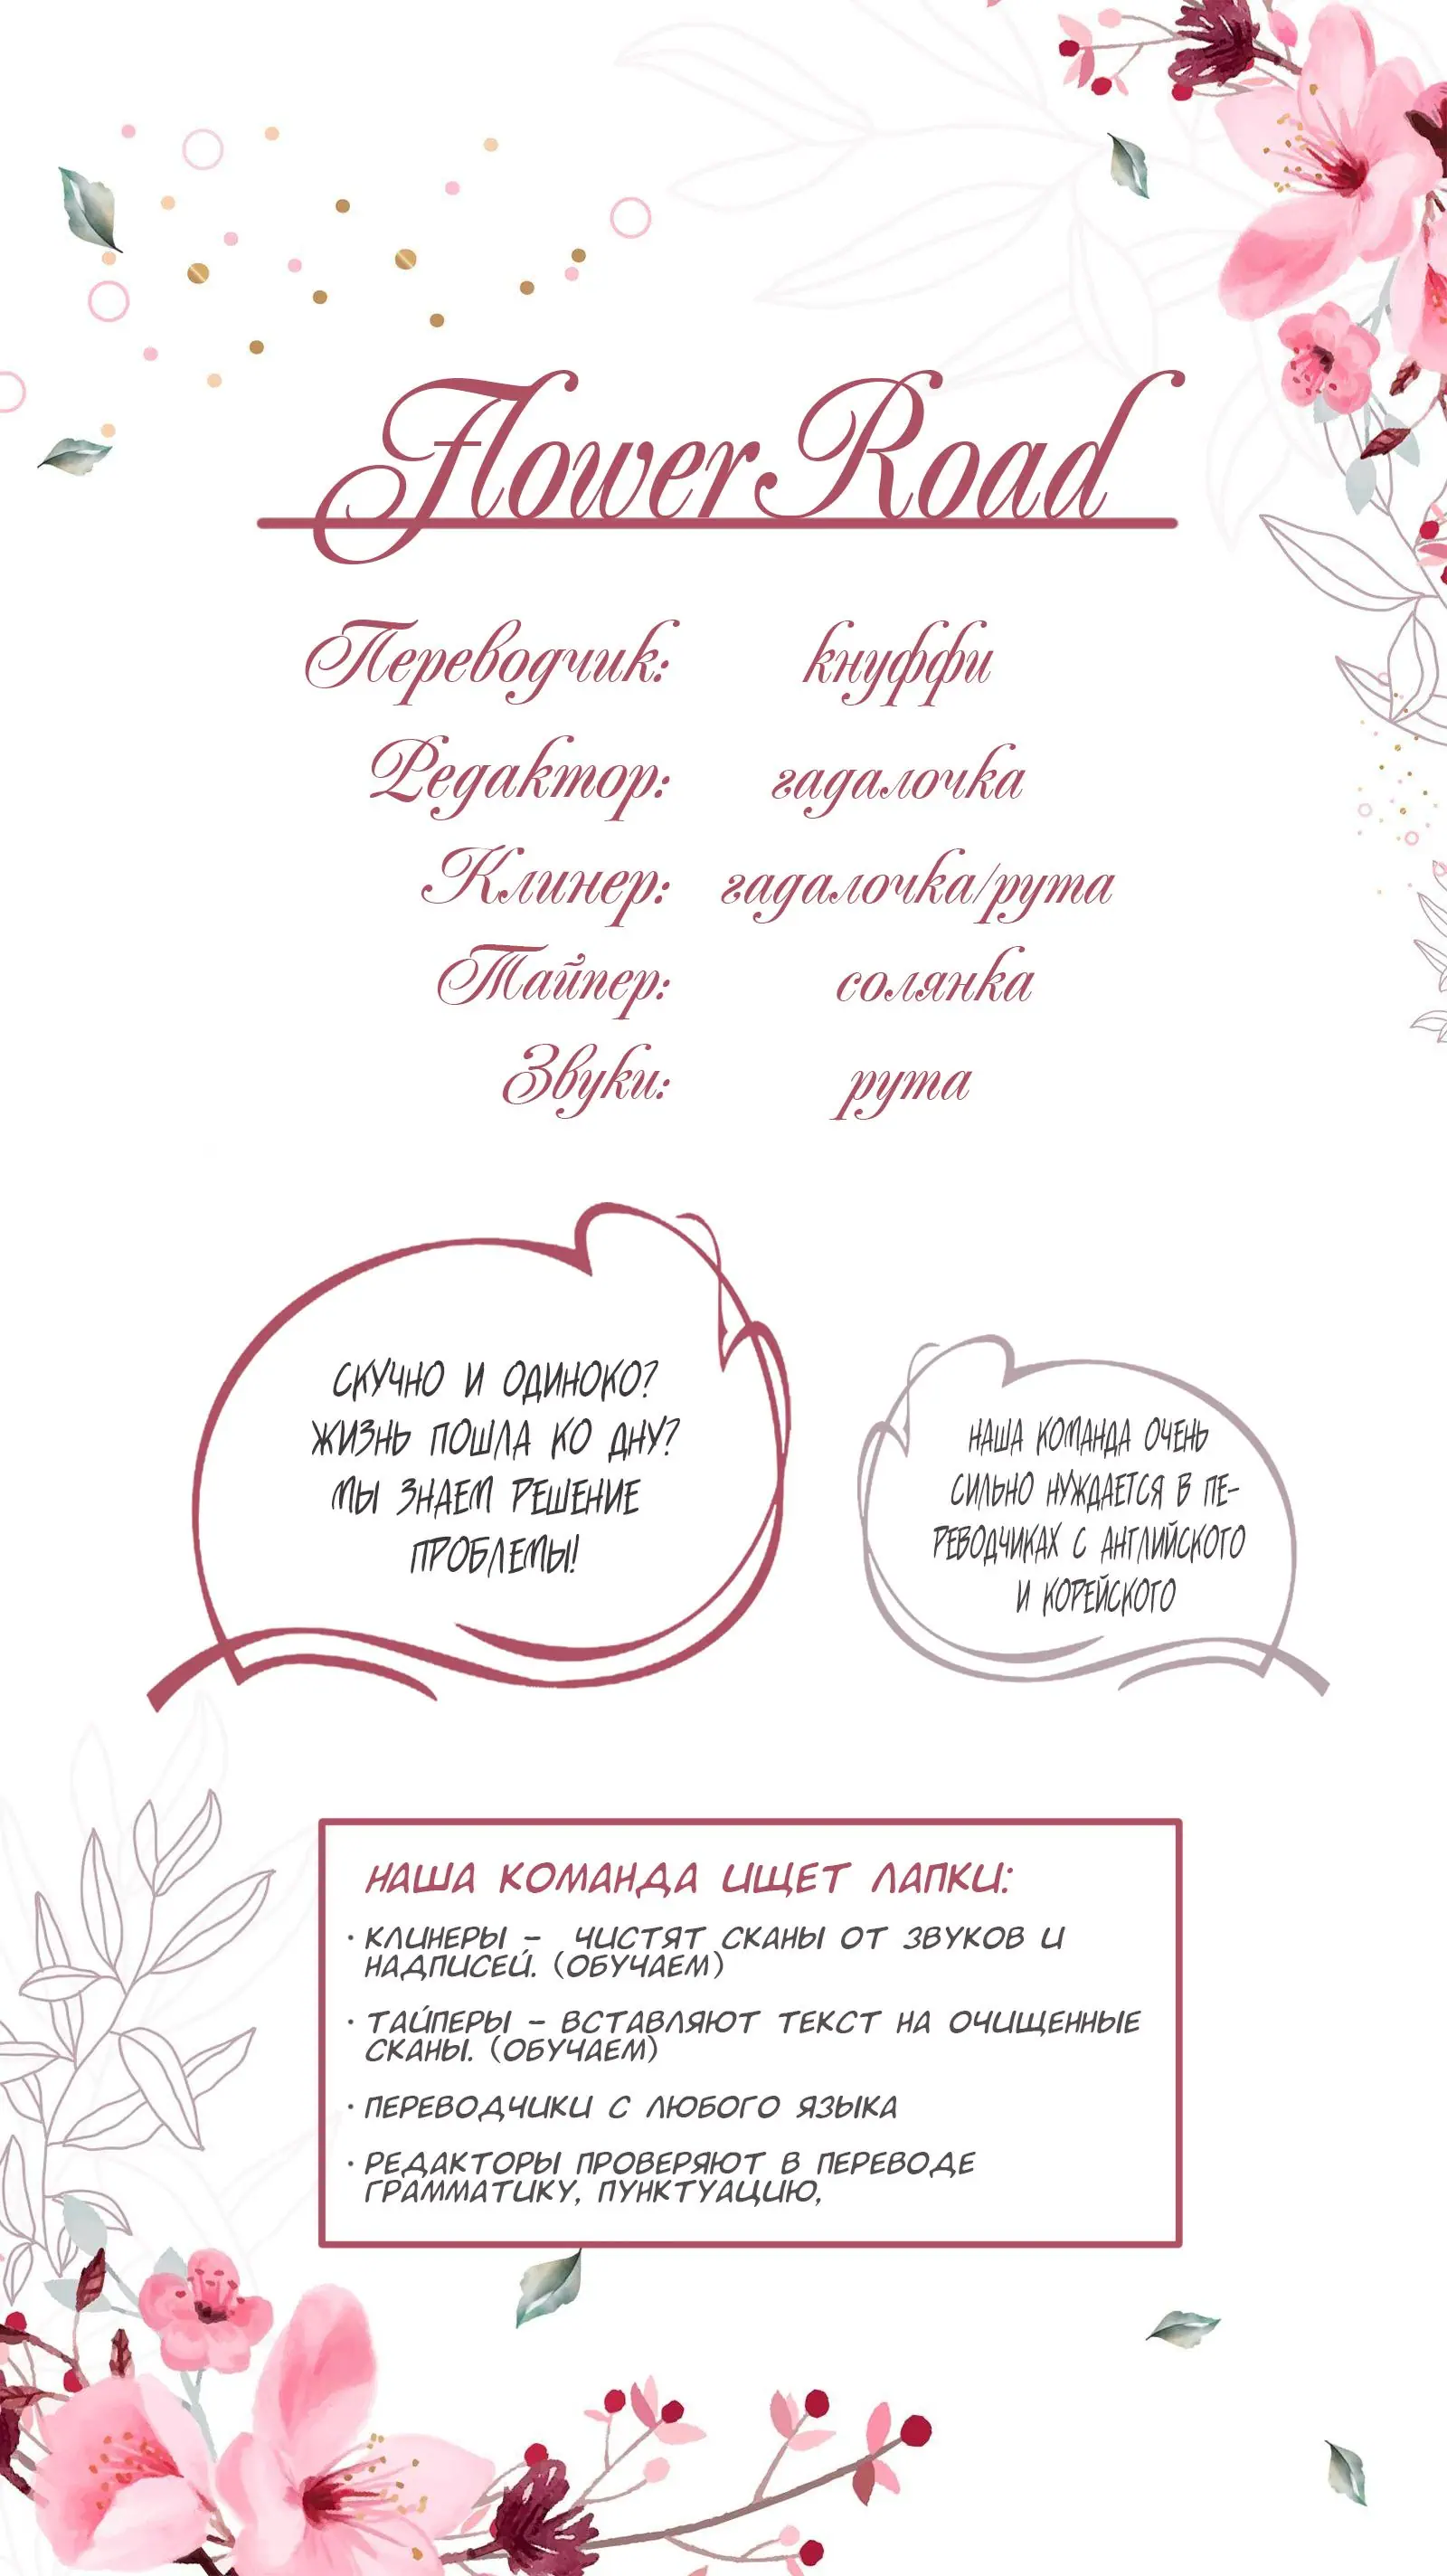 Flower Road
Переводчик: кнуффи
Редактор: гадалочка
Клинер: гадалочка/рута
Тайпер: солянка
Звуки: рута
СКУЧНО И ОДИНОКО?
ЖИЗНЬ ПОШЛА КО ДНУ?
МЫ ЗНАЕМ РЕШЕНИЕ
ПРОБЛЕМЫ!
НАША КОМАНДА ОЧЕНЬ
СИЛЬНО НУЖДАЕТСЯ В ПЕ-
РЕВОДЧИКАХ С АНГЛИЙСКОГО
И КОРЕЙСКОГО
НАША КОМАНДА ИЩЕТ ЛАПКИ:
· КЛИНЕРЫ - ЧИСТЯТ СКАНЫ ОТ ЗВУКОВ И
НАДПИСЕЙ. (ОБУЧАЕМ)
· ТАЙПЕРЫ - ВСТАВЛЯЮТ ТЕКСТ НА ОЧИЩЕННЫЕ
СКАНЫ. (ОБУЧАЕМ)
· ПЕРЕВОДЧИКИ С ЛЮБОГО ЯЗЫКА
· РЕДАКТОРЫ ПРОВЕРЯЮТ В ПЕРЕВОДЕ
ГРАММАТИКУ, ПУНКТУАЦИЮ,